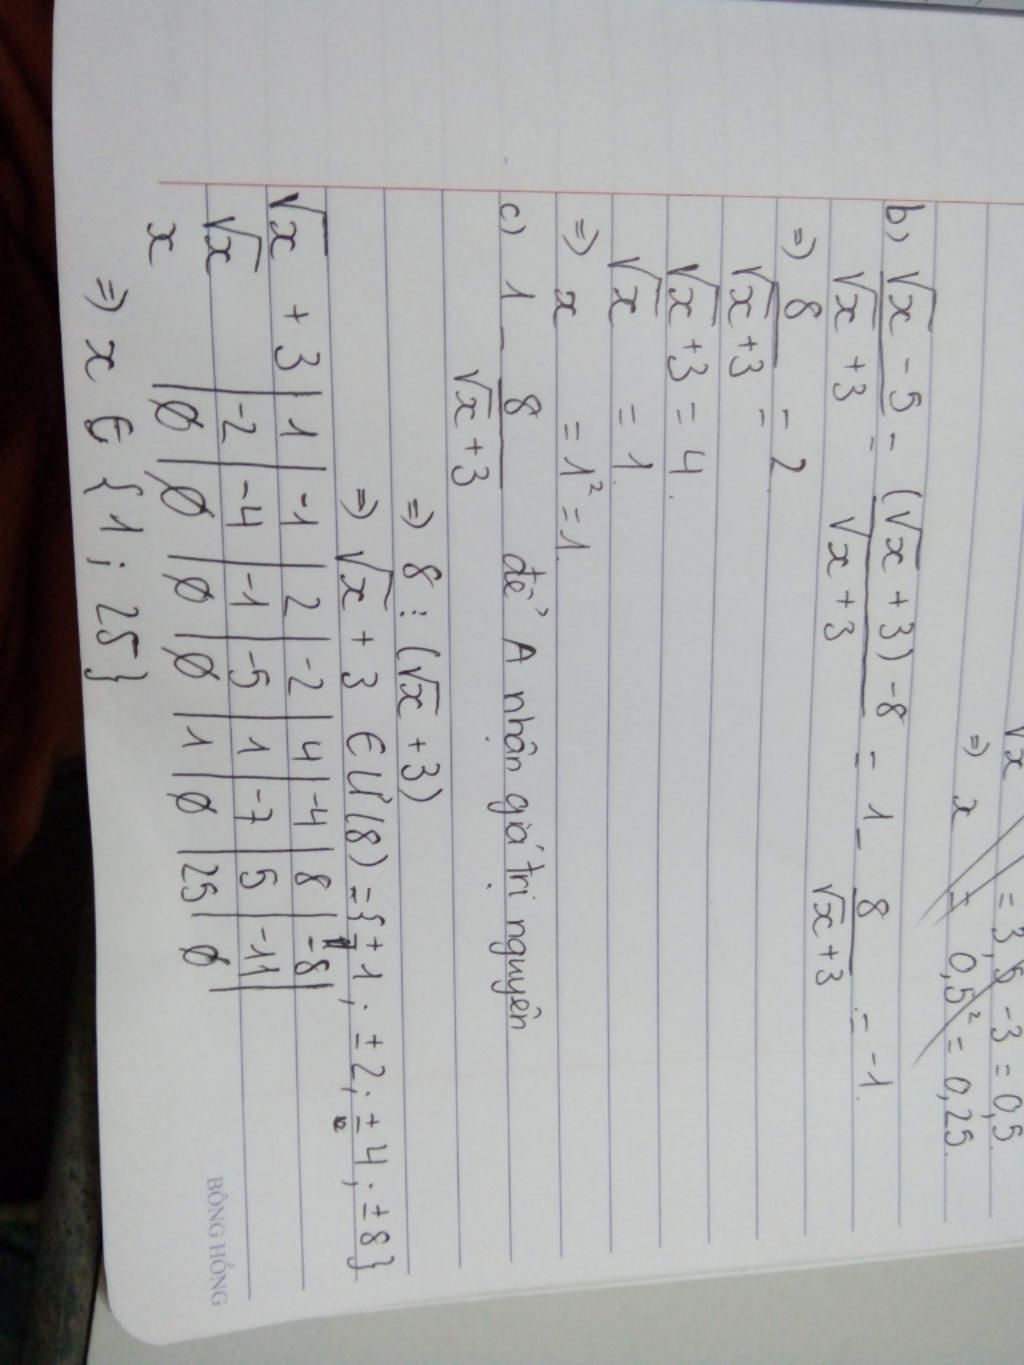 √x = 3,5 - 3 = 0,5
⇒ x = 0,5² = 0,25
b) (√x - 5)/(√x + 3) = ((√x + 3) - 8)/(√x + 3) = 1 - 8/(√x + 3) = -1
⇒ 8/(√x + 3) = 2
√x + 3 = 4
√x = 1
⇒ x = 1² = 1
c) 1 - 8/(√x + 3) để A nhận giá trị nguyên
⇒ 8 ⋮ (√x + 3)
⇒ √x + 3 ∈ Ư(8) = {±1; ±2; ±4; ±8}
√x + 3 | 1 | -1 | 2 | -2 | 4 | -4 | 8 | -8 |
√x | -2 | -4 | -1 | -5 | 1 | -7 | 5 | -11 |
x | ∅ | ∅ | ∅ | ∅ | 1 | ∅ | 25 | ∅
⇒ x ∈ {1; 25}
BÔNG HỒNG